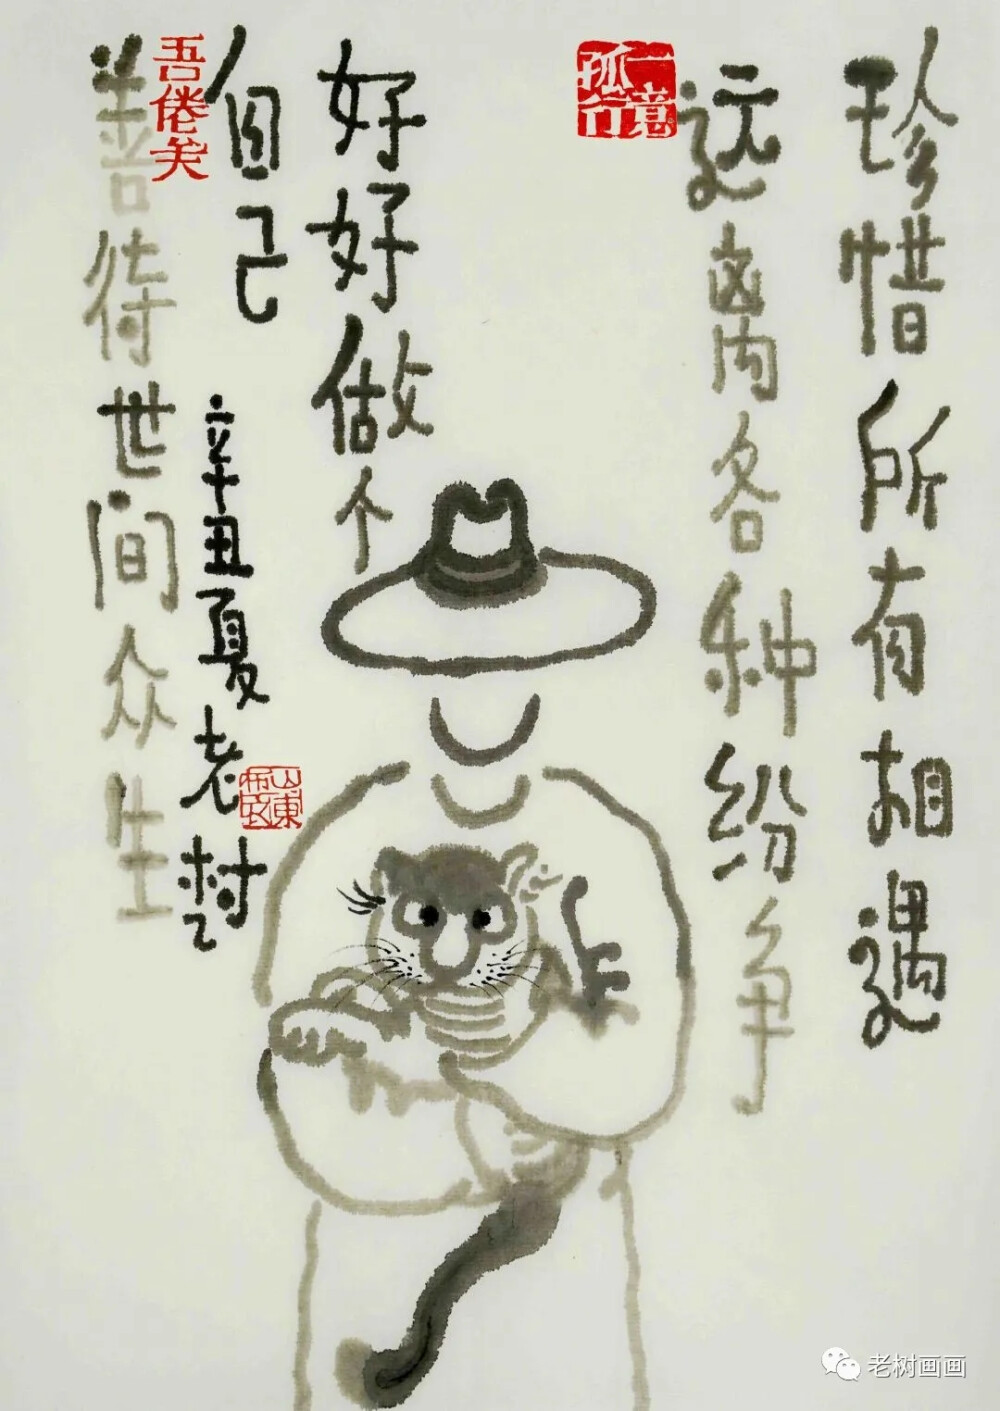 珍惜所有相遇
远离各种纷争
好好做个
自己
善待世间众生
辛丑夏老树
一意孤行
吾倦矣
山东布衣
老树画画